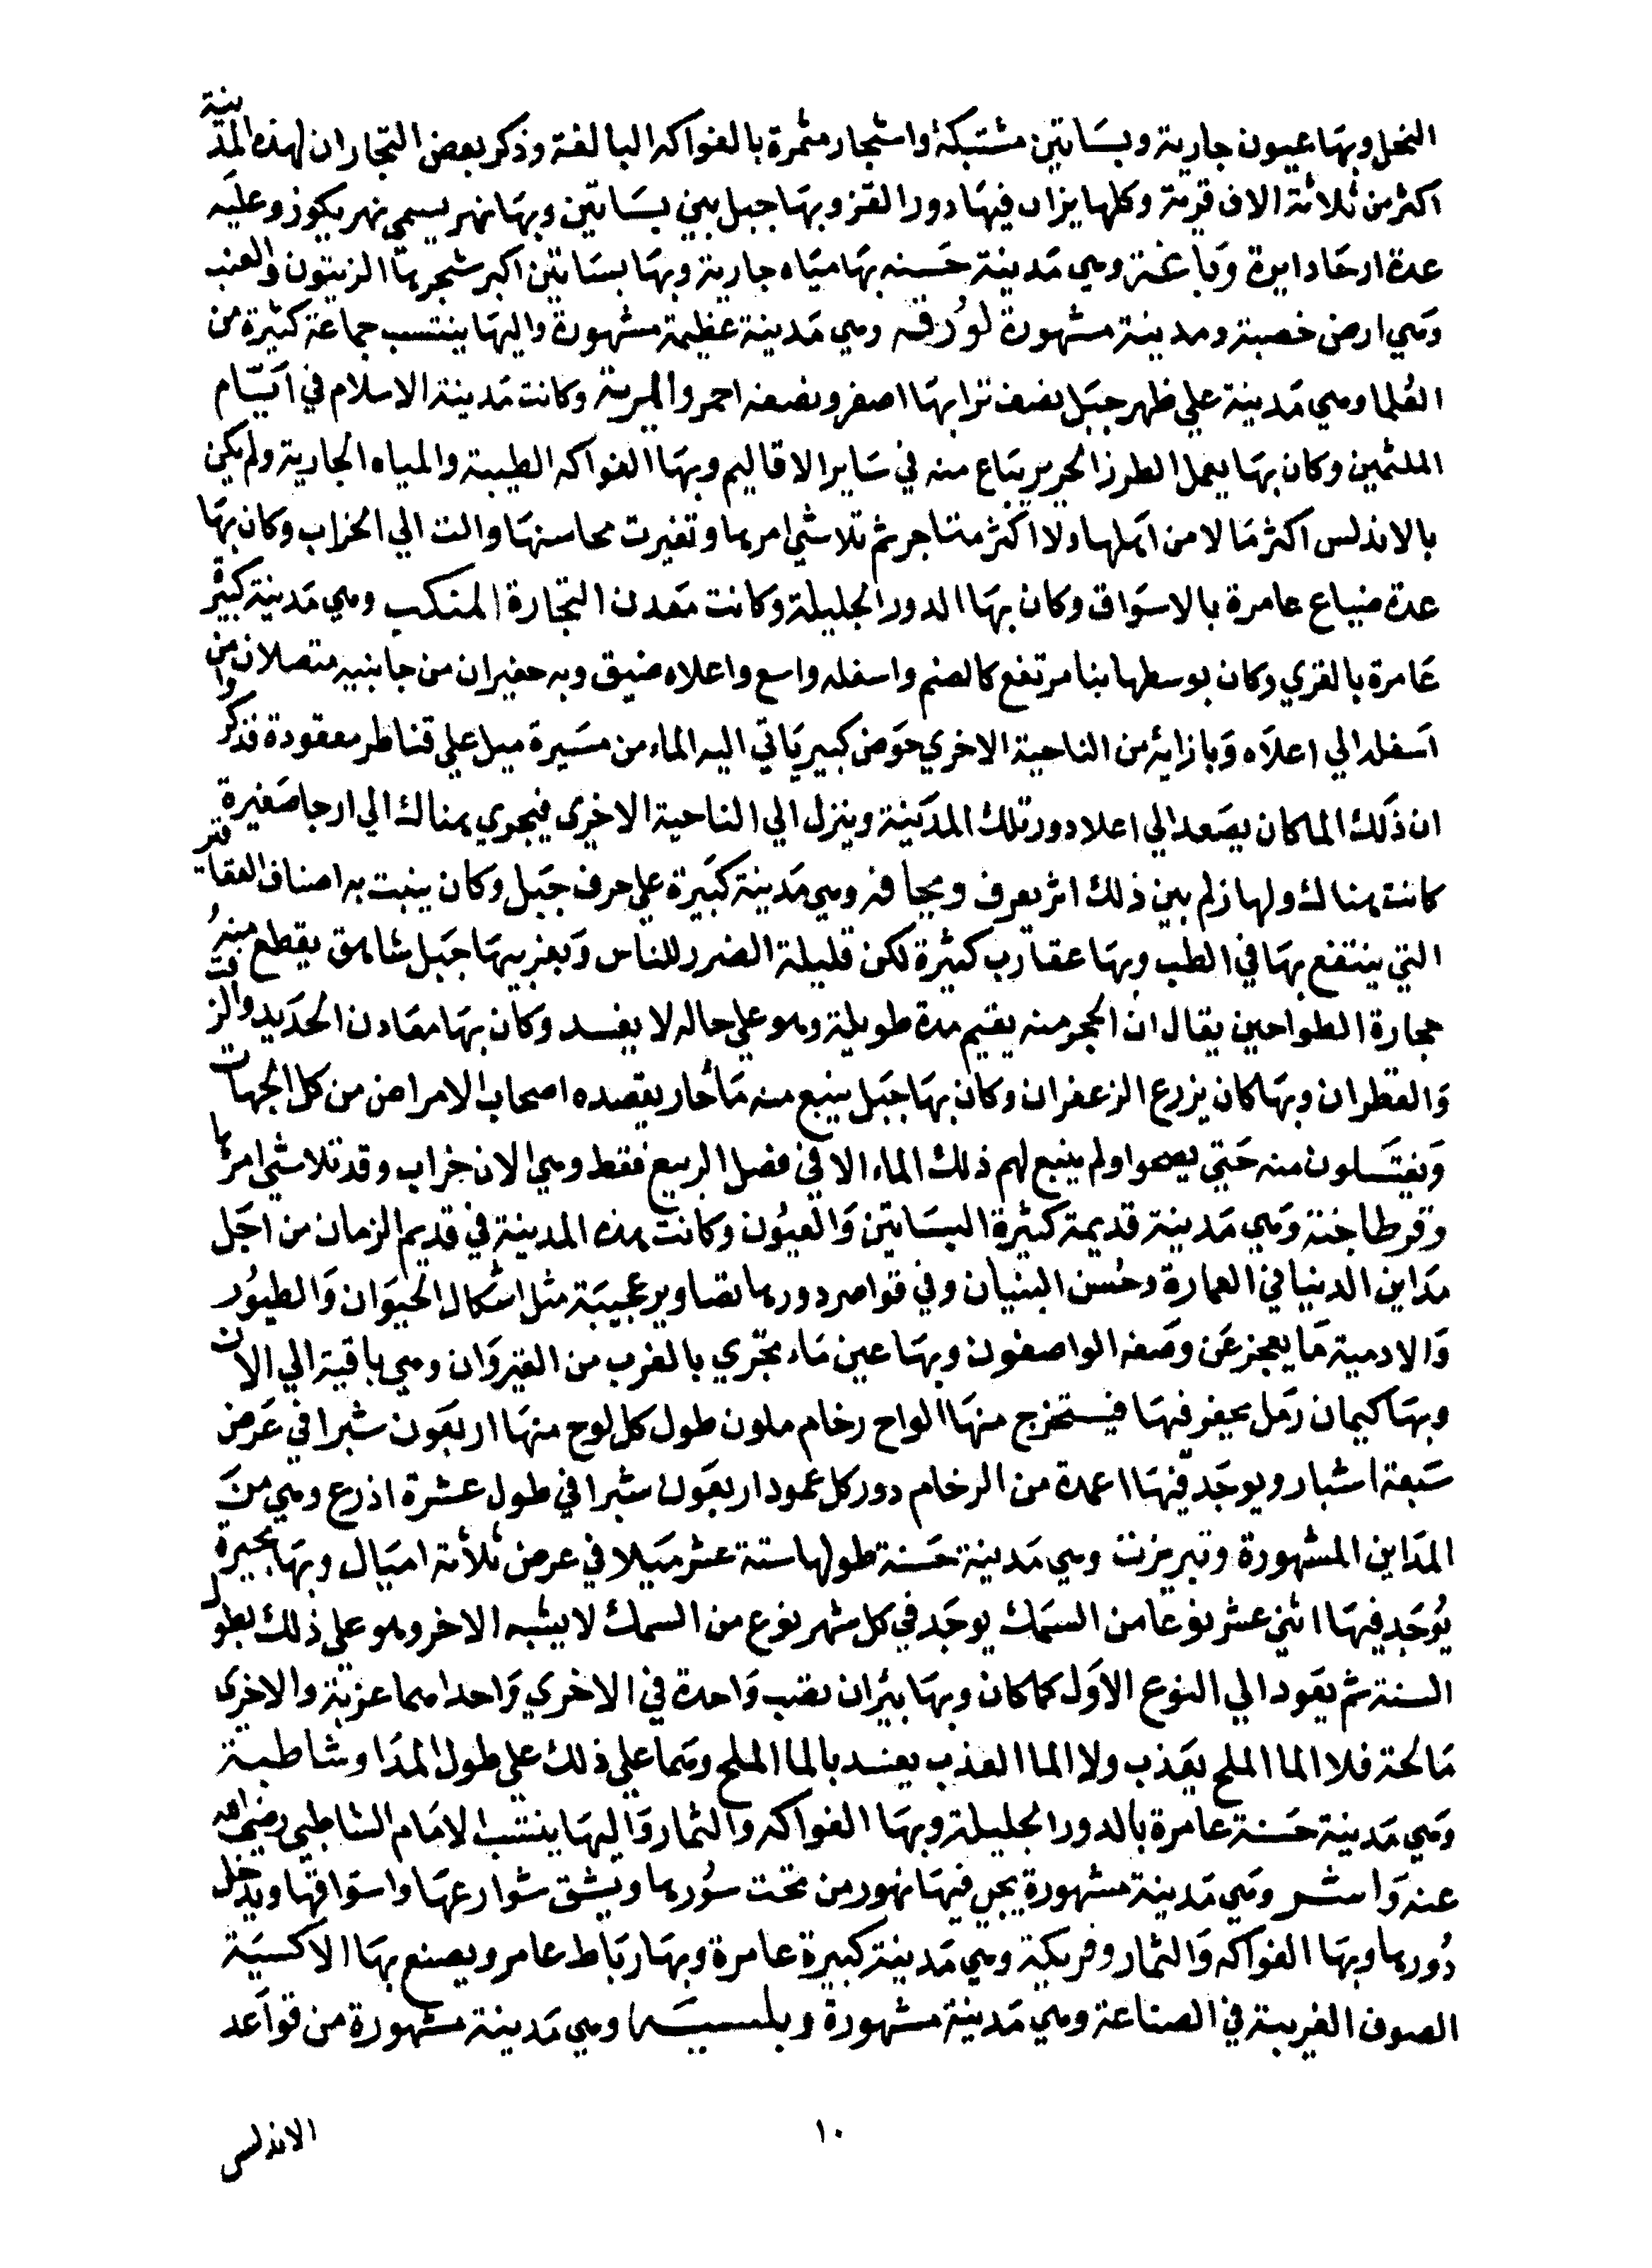 النخل وبها عيون جارية وبساتين مشتبكة واشجار مثمرة بالفواكه البالغة وذكر بعض التجار ان لهذه المدينة
اكثر من ثلاثة الاف قرية وكلها يزان فيها دور القز وبها جبل بين بساتين وبها نهر يسمي نهر يكوز وعليه
عدة ارحا دايرة وباغة وهي مدينة حسنه بها مياه جارية وبها بساتين اكبر شجرها الزيتون والعنب
وهي ارض خصبة ومدينة مشهورة لورقه وهي مدينة عظيمة مشهورة واليها ينتسب جماعة كثيرة من
العلما وهي مدينة علي ظهر جبل نصف ترابها اصفر ونصفه احمر والمرية وكانت مدينة الاسلام في ايام
الملثمين وكان بها يعمل الطرز الحرير يتباع منه في ساير الاقاليم وبها الفواكه الطيبة والمياه الجارية ولم يكن
بالاندلس اكثر مالا من اهلها ولا اكثر متاجر ثم تلاشي امرها وتغيرت محاسنها والت الي الخراب وكان بها
عدة ضياع عامرة بالاسواق وكان بها الدور الجليلة وكانت معدن التجارة المنكب وهي مدينة كبيرة
عامرة بالقري وكان بوسطها بنا مرتفع كالصنم واسفله واسع واعلاه ضيق وبه حفيران من جانبيه متصلان من
اسفله الي اعلاه وبازايه من الناحية الاخري حوض كبير ياتي اليه الماء من مسيرة ميل علي قناطر معقودة فذكروا
ان ذلك الما كان يصعد الي اعلا دور تلك المدينة وينزل الي الناحية الاخري فيجري هناك الي ارحا صغيرة
كانت هناك ولها زلم بين ذلك اثر يعرف وبجانه وهي مدينة كبيرة علي حرف جبل وكان ينبت به اصناف العقاقير
التي ينتفع بها في الطب وبها عقارب كثيرة لكن قليلة الضرر للناس وبغربيها جبل شاهق يقطع منه
حجارة الطواحين يقال ان الحجر منه يقيم مدة طويلة وهو علي حاله لا يفسد وكان بها معادن الحديد والزفت
والقطران وبها كان يزرع الزعفران وكان بها جبل ينبع منه ما حار يقصده اصحاب الامراض من كل الجهات
ويغتسلون منه حتي يصحوا ولم ينبع لهم ذلك الماء الا في فصل الربيع فقط وهي الان خراب وقد تلاشي امرها
وقرطاجنة وهي مدينة قديمة كثيرة البساتين والعيون وكانت هذه المدينة في قديم الزمان من اجل
مداين الدنيا في العمارة وحسن البنيان وفي قواصر دورها تصاوير عجيبة مثل اشكال الحيوان والطيور
والادمية ما يعجز عن وصفه الواصفون وبها عين ماء تجري بالغرب من القيروان وهي باقية الي الان
وبها كيمان رمل يحفر فيها فيستخرج منها الواح رخام ملون طول كل لوح منها اربعون شبرا في عرض
سبعة اشبار ويوجد فيها اعمدة من الرخام دور كل عمود اربعون شبرا في طول عشرة اذرع وهي من
المداين المشهورة وتبريزت وهي مدينة حسنة طولها ستة عشر ميلا في عرض ثلاثة اميال وبها بحيرة
يوجد فيها اثني عشر نوعا من السمك يوجد في كل شهر نوع من السمك لا يشبه الاخر وهو علي ذلك بطول
السنة ثم يعود الي النوع الاول كما كان وبها بئران تصب واحدة في الاخري واحداهما عزبة والاخري
مالحة فلا الما الملح يعذب ولا الما العذب يفسد بالما الملح وهما علي ذلك علي طول المدا وشاطبة
وهي مدينة حسنة عامرة بالدور الجليلة وبها الفواكه والثمار واليها ينتسب الامام الشاطبي رضي الله
عنه واشر وهي مدينة مشهورة يجي فيها نهور من تحت سورها ويشق شوارعها واسواقها ويدخل
دورها وبها الفواكه والثمار وفريكية وهي مدينة كبيرة عامرة وبها رباط عامر ويصنع بها الاكسية
الصوف الغريبة في الصناعة وهي مدينة مشهورة وبلنسيه وهي مدينة مشهورة من قواعد
الاندلس
١٠